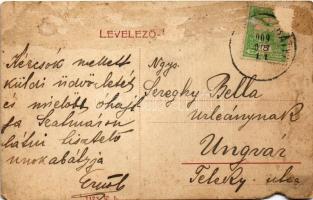 LEVELEZŐ-
909
Kércsók mellett
küldi üdvözletét
és mielőbb óhajt
ja Szalmáson
látni tisztelő
unokabátyja
Ernő
Ngs.
Sereghy Bella
Urleánynak
Ungvár
Teleky utca